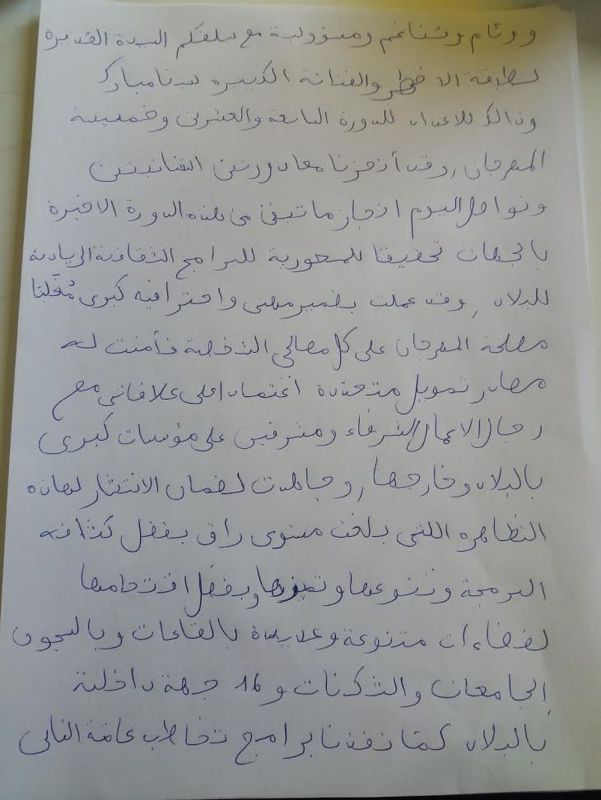 ووئام وتناغم ومسؤولية مع سلفكم السيدة القديرة
لطيفة الأخضر والفنانة الكبيرة سنا مبارك
وذالك للاعداد للدورة التاسعة والعشرين وخمسينية
المهرجان, وقد أنجزنا معا دورتين اثنتين
ونواصل اليوم انجاز ما تبقى من هذه الدورة الاخيرة
بالجهات تحقيقا للمحورية للبرامج الثقافية الريادية
للبلاد, وقد عملت بضمير مهني واحترافية كبرى مُغَلِّبا
مصلحة المهرجان على كل مصالحي الشخصية فأمنت له
مصادر تمويل متعددة اعتمادا على علاقاتي مع
رجال الاعمال الشرفاء ومشرفين على مؤسسات كبرى
بالبلاد وخارجها, وجاهدت لضمان الانتشار لهاذه
التظاهره اللتي بلغت مستوى راق بفضل كثافة
البرمجة وتنوعها وتميزها وبفضل اقتحامها
لفضاءات متنوعة وعديدة بالقاعات وبالسجون
الجامعات والثكنات و 16 جهة داخلية
بالبلاد كما نفذنا برامج تخاطب عامة الناس